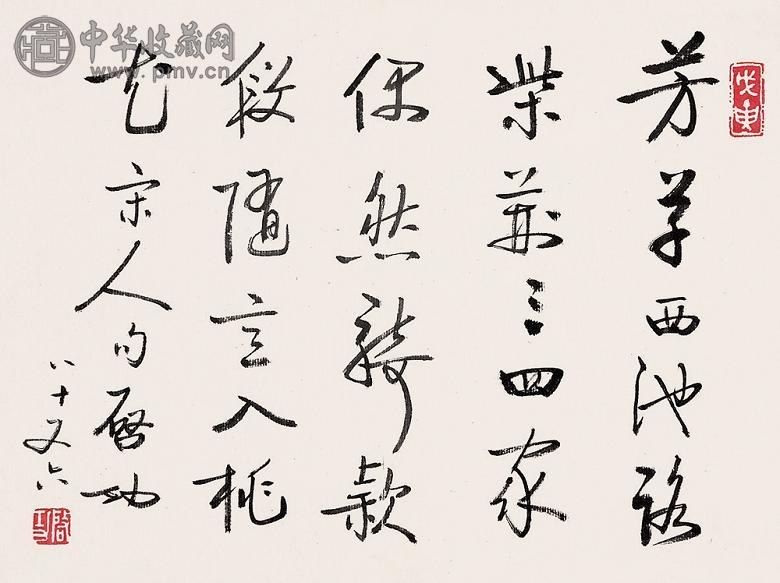 中华收藏网
www.pmv.cn
芳草西池路
柴荆三四家
偶然騎款
段隨意入桃
花宋人句啓功
八十又六
戊寅